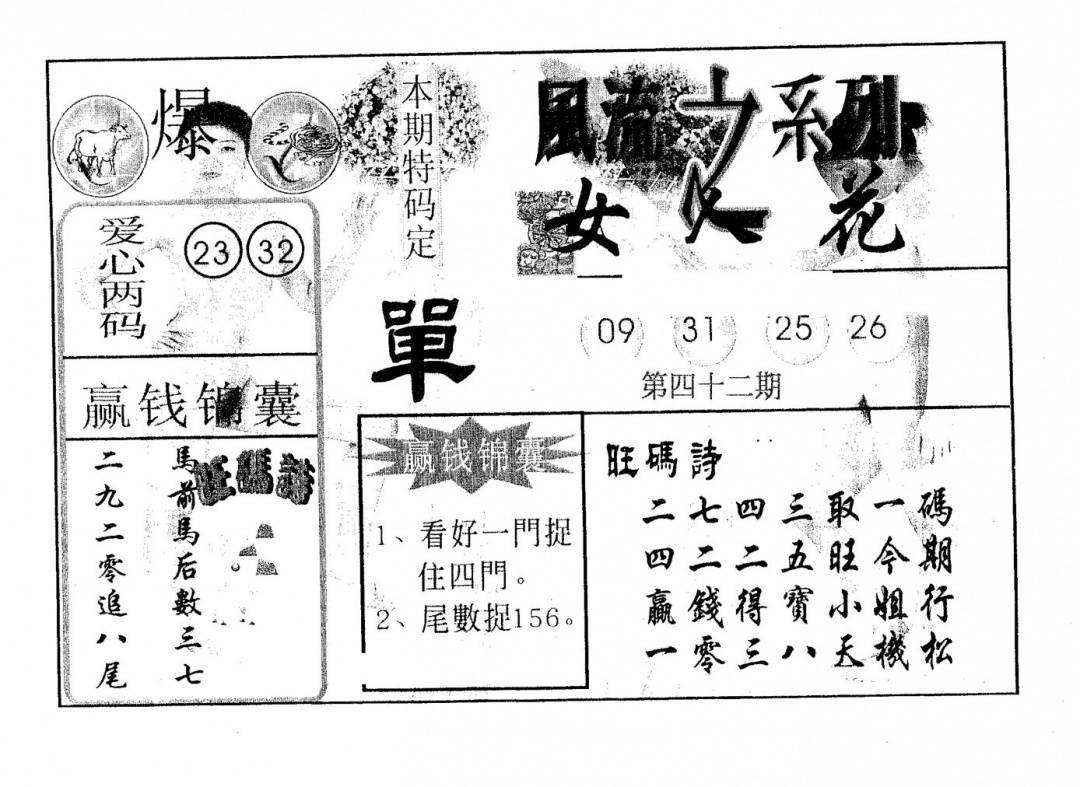 爆
本期特码定
單
風流
之
系列
女
花
爱心两码
23 32
09 31 25 26
第四十二期
赢钱锦囊
馬前馬后數三七
二九二零追八尾
旺碼詩
赢钱锦囊
1、看好一門捉
住四門。
2、尾數捉156。
旺碼詩
二七四三取一碼
四二二五旺今期
贏錢得寶小姐行
一零三八天機松